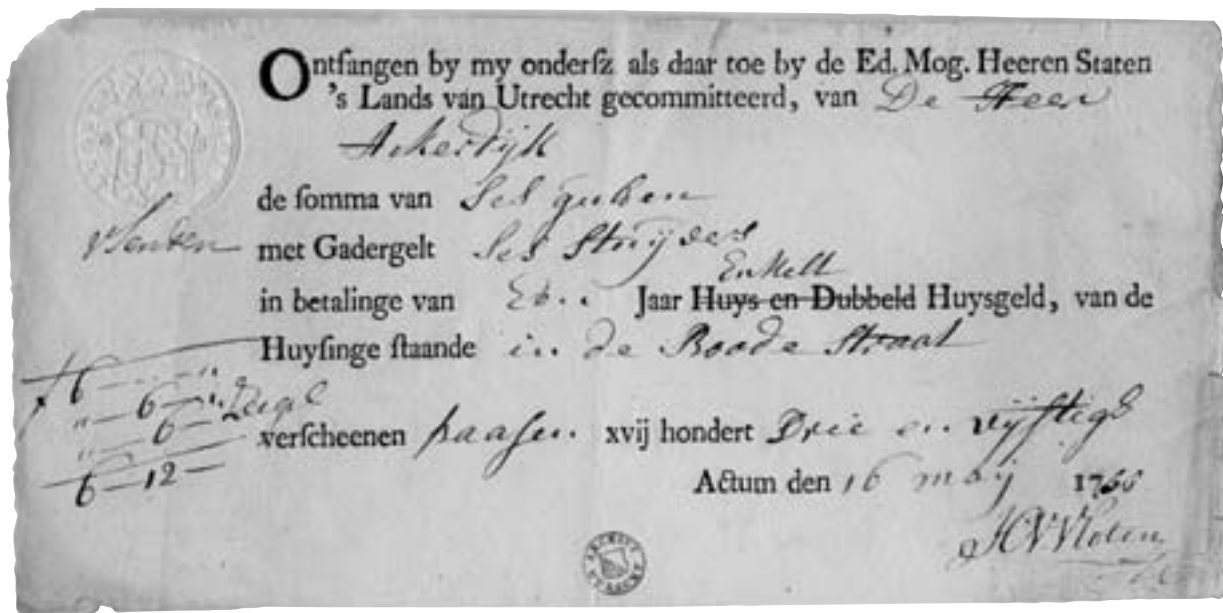 Ontfangen by my onderſz als daar toe by de Ed. Mog. Heeren Staten
's Lands van Utrecht gecommitteerd, van De Heer
Ackerdijk
de ſomma van Ses gulden
met Gadergelt Ses Stuijvers
Enkelt
in betalinge van Jaar Huys en Dubbeld Huysgeld, van de
Huyſinge ſtaande in de Boode Straat
6
6 Zegel
6
6-12-
verſcheenen paasen xvij hondert Drie en vijftigh
Actum den 16 maij 1766